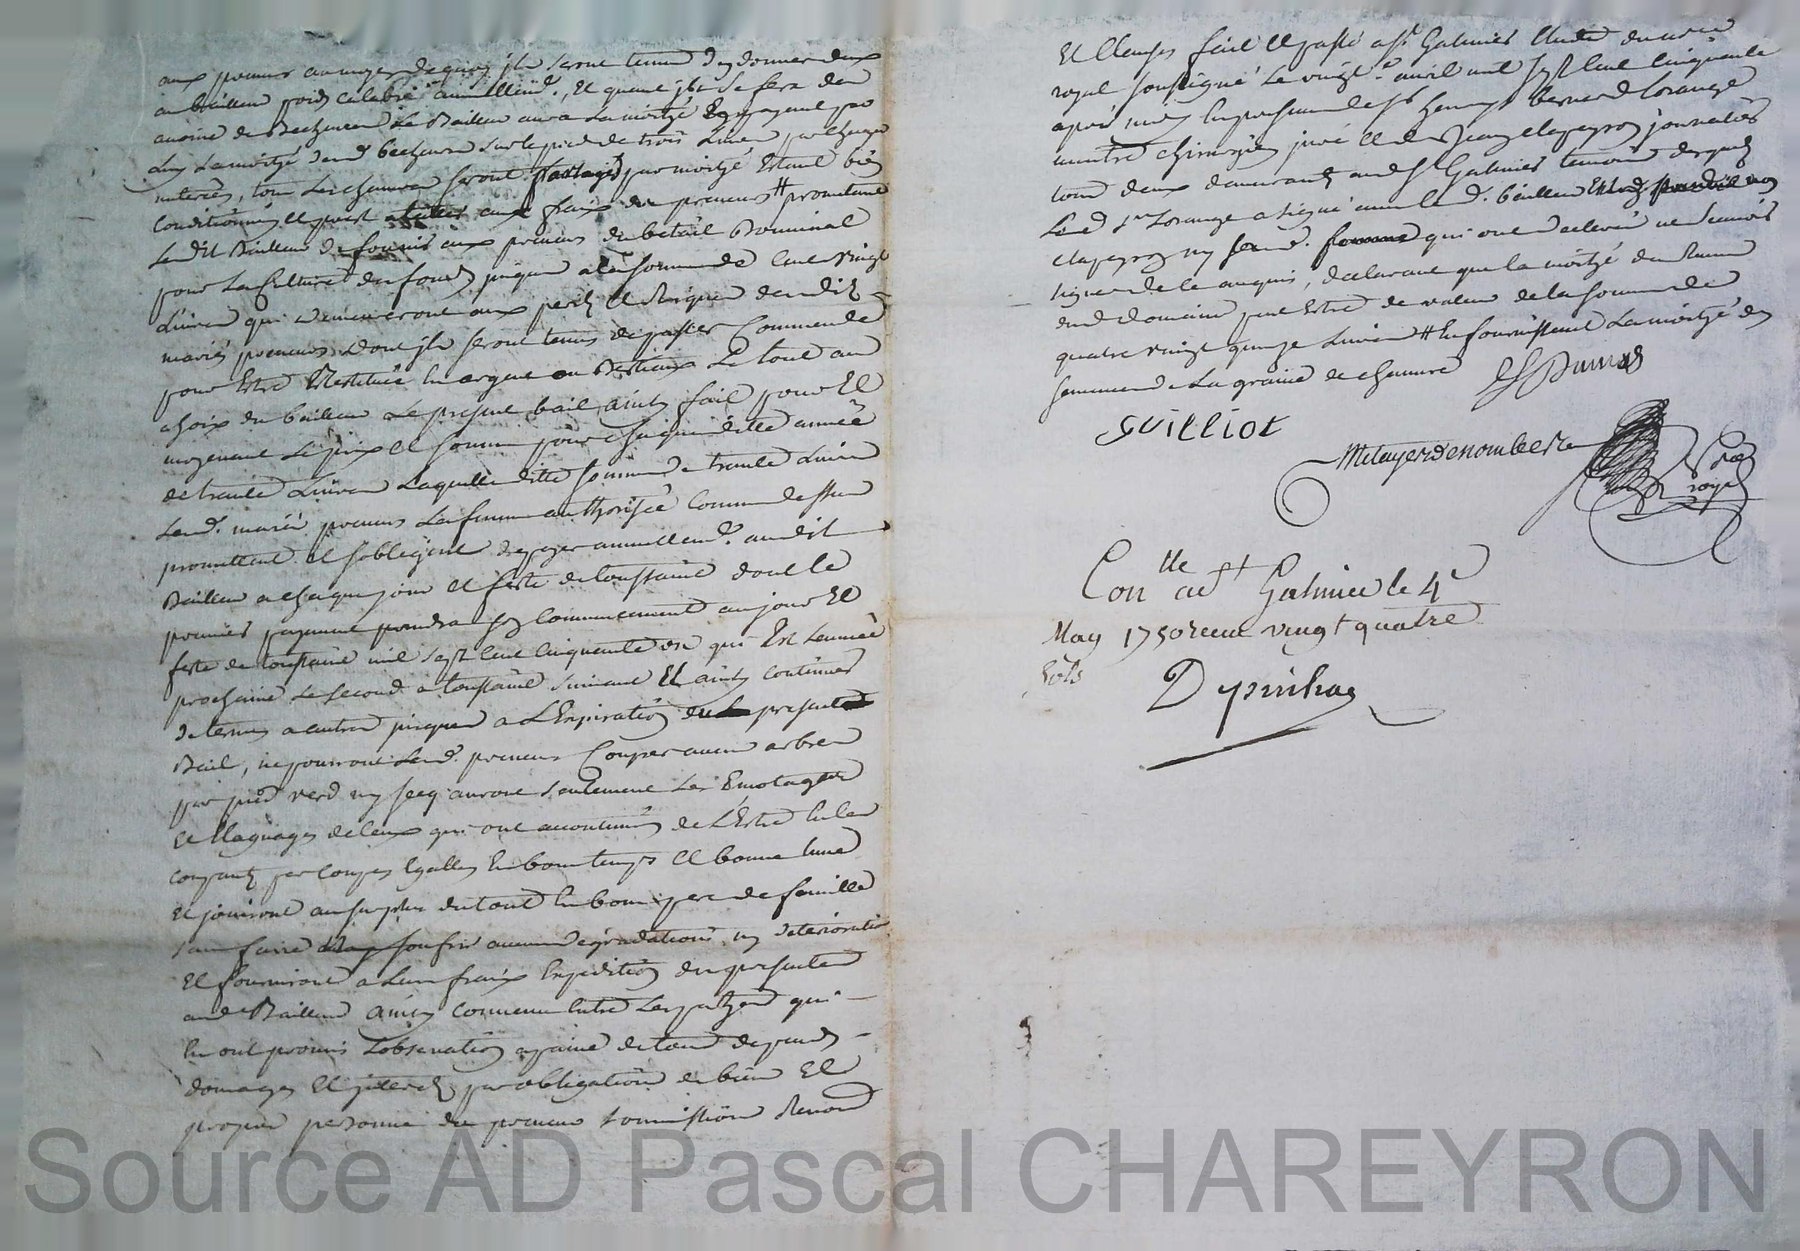 aux preneurs au moyen de quoy ils seront tenus d'en donner deux
au bailleur poids celebre annuellemt., Et quand ils se fera des
avoine de Bechures Le Bailleur aura La moitié En payant par
luy La moitié des d. bechures sur le pied de trois Livres par chaque
meterée, tous Les chanvres seront partagés par moitié Estant bien
Conditionnés Et aux fraix des preneurs # promettant
Le dit Bailleur de fournir aux preneurs du betail Bouvinal
pour La Culture du fonds jusques a la somme de Cent vingt
Livres qui demeureront aux perils Et Risques desdits
mariés preneurs dont ils seront tenus de passer Commende
pour Estre Restituée En argent ou Bestiaux Le tout au
choix du bailleur Le present bail ainsy fait pour Et
moyenant Le prix et somme pour chaquunne ditte année
de trante Livres Laquelle ditte somme de trante Livres
Lesd. mariés preneurs La femme authorisée Comme dessus
promettent et s'obligent de payer annuellemt. audit
Bailleur a chaque jour et feste de toussaint dont le
premier payement prendra son Commencement au jour Et
feste de toussaint mil sept cent cinquante un qui Est L'année
prochaine Le second a toussaint suivant Et ainsy continuer
de termes a autres jusques a L'Expiration du present
Bail, ne pourront Lesd. preneurs Couper aucun arbres
par pied verd ny secq auront seulement Les Emotages
et Elaguages de ceux qui ont accoutumés de L'Estre En les
coupant par coupes Egalles En bon temps Et bonne lune
Et jouiront au surplus du tout En bon pere de famille
sans faire souffrir aucunes degradations ny deterioration
Et fourniront a Leurs fraix Expedition des presentes
aud. Bailleur ainsy Convenu Entre Les parties qui
En ont promis L'observation a paine de tous depends
domages Et interets par obligation de biens Et
propre personne des preneurs soumissions Renons
Et Clauses fait Et passé a St. Galmier Etude du nore
royal soussigné Le vingt avril mil sept cent Cinquante
après midy En presence de Sr. Bernard Lorange
maitre chirurgien juré Et de Jean Clapeyron journalier
tous deux demeurants aud. St Galmier temoins desquels
Led. Sr Lorange a signé avec led. bailleur Et non
Clapeyron ny qui ont declarés ne scavoir
signer de ce enquis, declarant que la moitié du Revenu
dud. domaine peut Estre de valeur de la somme de
quatre vingt quinze Livres # En fournissant La moitié des
semences La graine de chanvre
GUILLIOT
Metayer de nombreze
nore
royal
Conlle a St Galmier le 4e
May 1750 recu vingt quatre
sols